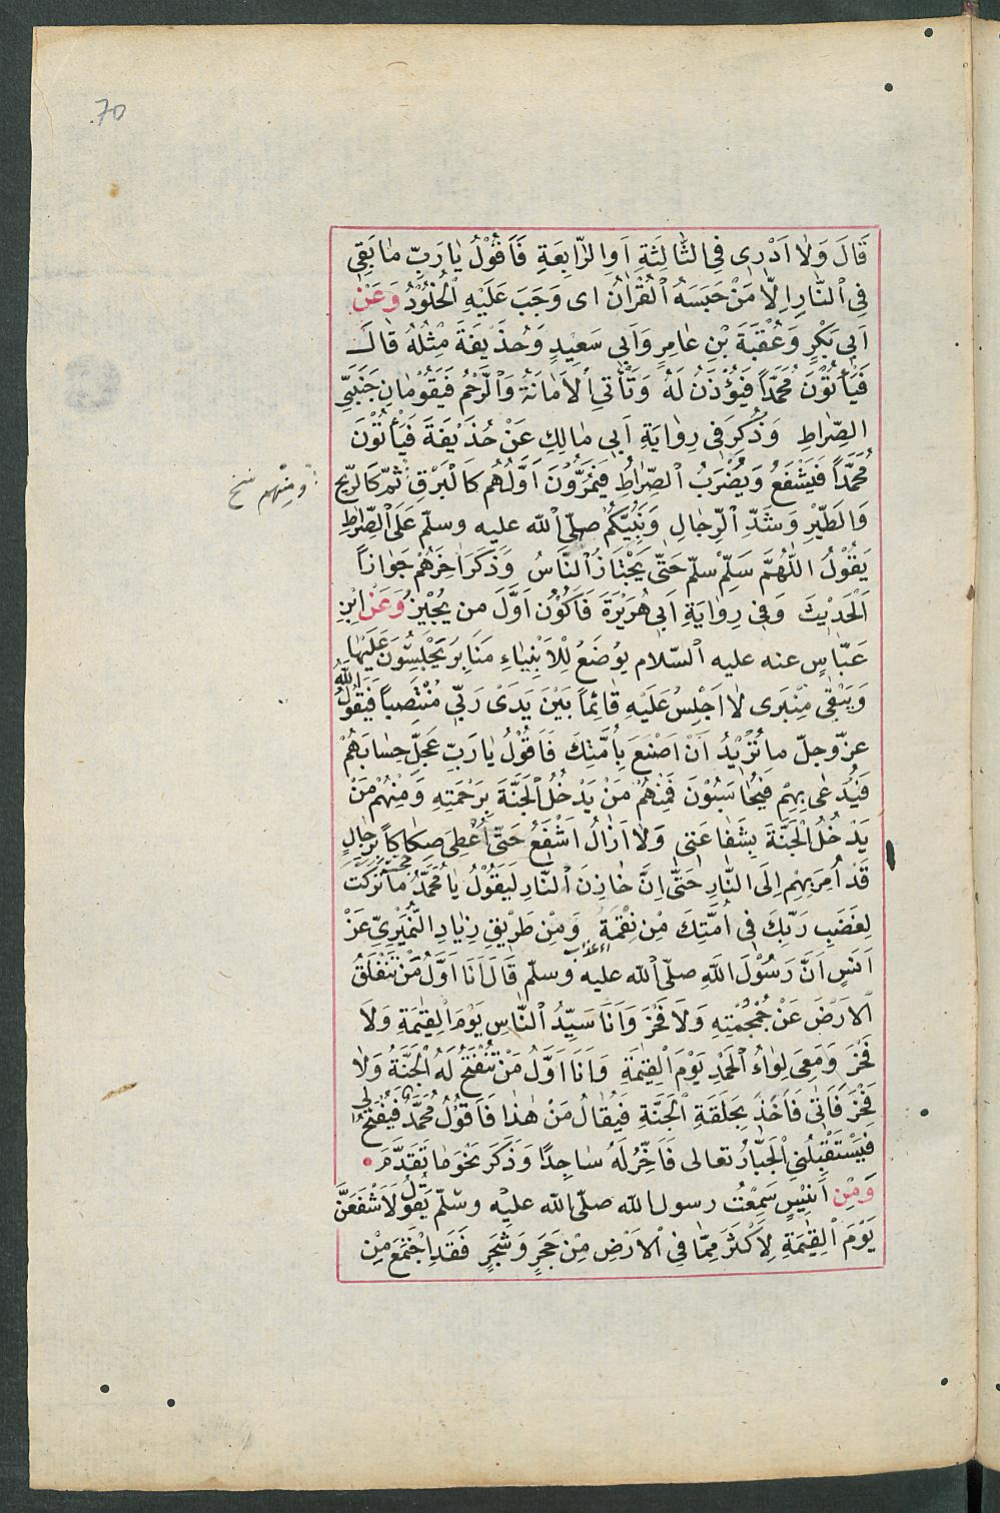 70
قَالَ وَلَا اَدْرِى فِى الثَّالِثَةِ اَوِ الرَّابِعَةِ فَاَقُوْلُ يَا رَبِّ مَا بَقِىَ
فِى النَّارِ اِلَّا مَنْ حَبَسَهُ الْقُرْاٰنُ اى وَجَبَ عَلَيْهِ الْخُلُوْدُ وَعَنْ
اَبِى بَكْرٍ وَعُقْبَةَ بْنِ عَامِرٍ وَاَبِى سَعِيْدٍ وَحُذَيْفَةَ مِثْلُهُ قَالَ
فَيَأْتُوْنَ مُحَمَّداً فَيُؤْذَنُ لَهُ وَتَأْتِى الْاَمَانَةُ وَالرَّحْمُ فَيَقُوْمَانِ جَنَبَتَىِ
الصِّرَاطِ وَذُكِرَ فِى رِوَايَةِ اَبِى مَالِكٍ عَنْ حُذَيْفَةَ فَيَأْتُوْنَ
مُحَمَّداً فَيَشْفَعُ وَيُضْرَبُ الصِّرَاطُ فَيَمُرُّوْنَ اَوَّلُهُم كَالْبَرْقِ ثُمَّ كَالرِّيْحِ
وَالطَّيْرِ وَشَدِّ الرِّجَالِ وَنَبِيُّكُمْ صلّى الله عليه وسلّم عَلَى الصِّرَاطِ
يَقُوْلُ اللّٰهُمَّ سَلِّمْ سَلِّم حَتَّى يَجْتَازَ النَّاسُ وَذَكَرَ اٰخِرَهُمْ جَوَازاً
اَلْحَدِيْثَ وَفِى رِوَايَةِ اَبِى هُرَيْرَةَ فَاَكُوْنُ اَوَّلَ من يُجِيْزُ وَعَنِ ابْنِ
عَبَّاسٍ عنه عليه السّلام يوُضَعُ لِلْاَنْبِيَاءِ مَنَابِرُ يَجْلِسُوْنَ عَلَيْهَا
وَيَبْقٰى مِنْبَرِى لَا اَجْلِسُ عَلَيْهِ قَائِمًا بَيْنَ يَدَىْ رَبِّى مُنْتَصِبًا فَيَقُوْلُ اللّٰهُ
عزّ وجلّ ما تُرِيْدُ اَنْ اَصْنَعَ بِاُمَّتِكَ فَاَقُوْلُ يَا رَبِّ عَجِّلْ حِسَابَهُمْ
فَيُدْعٰى بِهِمْ فَيُحَاسَبُوْنَ فَمِنْهُمْ مَنْ يَدْخُلُ الْجَنَّةَ بِرَحْمَتِهِ وَمِنْهُمْ مَنْ
يَدْخُلُ الْجَنَّةَ بِشَفَاعَتِى وَلَا اَزَالُ اَشْفَعُ حَتَّى اُعْطٰى صِكَاكًا بِرِجَالٍ
قَدْ اُمِرَ بِهِمْ اِلَى النَّارِ حَتَّى اِنَّ خَازِنَ النَّارِ لَيَقُوْلُ يَا مُحَمَّدُ مَا تَرَكْتَ
لِغَضَبِ رَبِّكَ فِى اُمَّتِكَ مِنْ نِقْمَةٍ وَمِنْ طَرِيْقِ زِيَادٍ النُّمَيْرِىِّ عَنْ
اَنَسٍ اَنَّ رَسُوْلَ اللهِ صلّى الله عليه وسلّم قَالَ اَنَا اَوَّلُ مَنْ تَنْفَلِقُ
الْاَرْضَ عَنْ جُمْجُمَتِهِ وَلَا فَخْرَ وَاَنَا سَيِّدُ النَّاسِ يَوْمَ الْقِيٰمَةِ وَلَا
فَخْرَ وَمَعِى لِوَاءُ الْحَمْدِ يَوْمَ الْقِيٰمَةِ وَاَنَا اَوَّلُ مَنْ تُفْتَحُ لَهُ الْجَنَّةُ وَلَا
فَخْرَ فَاٰتِى فَاٰخُذُ بِحَلَقَةِ الْجَنَّةِ فَيُقَالُ مَنْ هٰذَا فَاَقُوْلُ مُحَمَّدٌ فَيُفْتَحُ لِى
فَيَسْتَقْبِلُنِى الْجَبَّارُ تعالى فَاَخِرُّ لَهُ سَاجِدًا وَذَكَرَ نَحْوَ مَا تَقَدَّمَ
وَمِن اُنَيْسٍ سَمِعْتُ رسول الله صلّى الله عليه وسلّم يَقُوْلُ لَاَشْفَعَنَّ
يَوْمَ الْقِيٰمَةِ لِاَكْثَرَ مِمَّا فِى الْاَرْضِ مِنْ حَجَرٍ وَشَجَرٍ فَقَدِ اجْتَمَعَ مِنْ